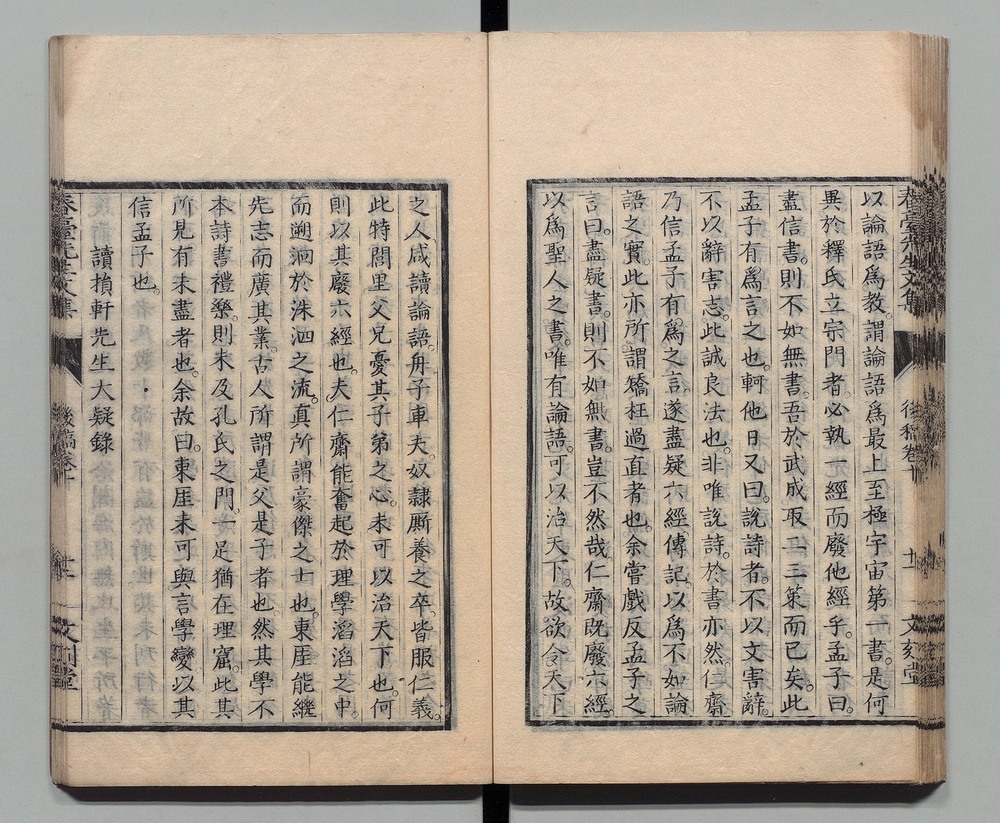 以論語爲教。謂論語爲最上至極宇宙第一書。是何
異於釋氏立宗門者。必執一經而廢他經乎。孟子曰。
盡信書。則不如無書。吾於武成取二三策而已矣。此
孟子有爲言之也。軻他日又曰。說詩者。不以文害辭。
不以辭害志。此誠良法也。非唯說詩。於書亦然。仁齋
乃信孟子有爲之言。遂盡疑六經傳記。以爲不如論
語之實。此亦所謂矯枉過直者也。余嘗戲反孟子之
言曰。盡疑書。則不如無書。豈不然哉。仁齋既廢六經。
以爲聖人之書。唯有論語。可以治天下。故欲令天下
之人咸讀論語。舟子車夫。奴隸厮養之卒。皆服仁義。
此特閭里父兄憂其子弟之心。未可以治天下也。何
則以其廢六經也。夫仁齋能奮起於理學滔滔之中。
而遡洄於洙泗之流。真所謂豪傑之士也。東厓能繼
先志而廣其業。古人所謂是父是子者也。然其學不
本詩書禮樂。則未及孔氏之門。一足猶在理窟。此其
所見有未盡者也。余故曰。東厓未可與言學變。以其
信孟子也。
讀損軒先生大疑錄
春臺先生文集
後稿卷十
廿二
文刻堂